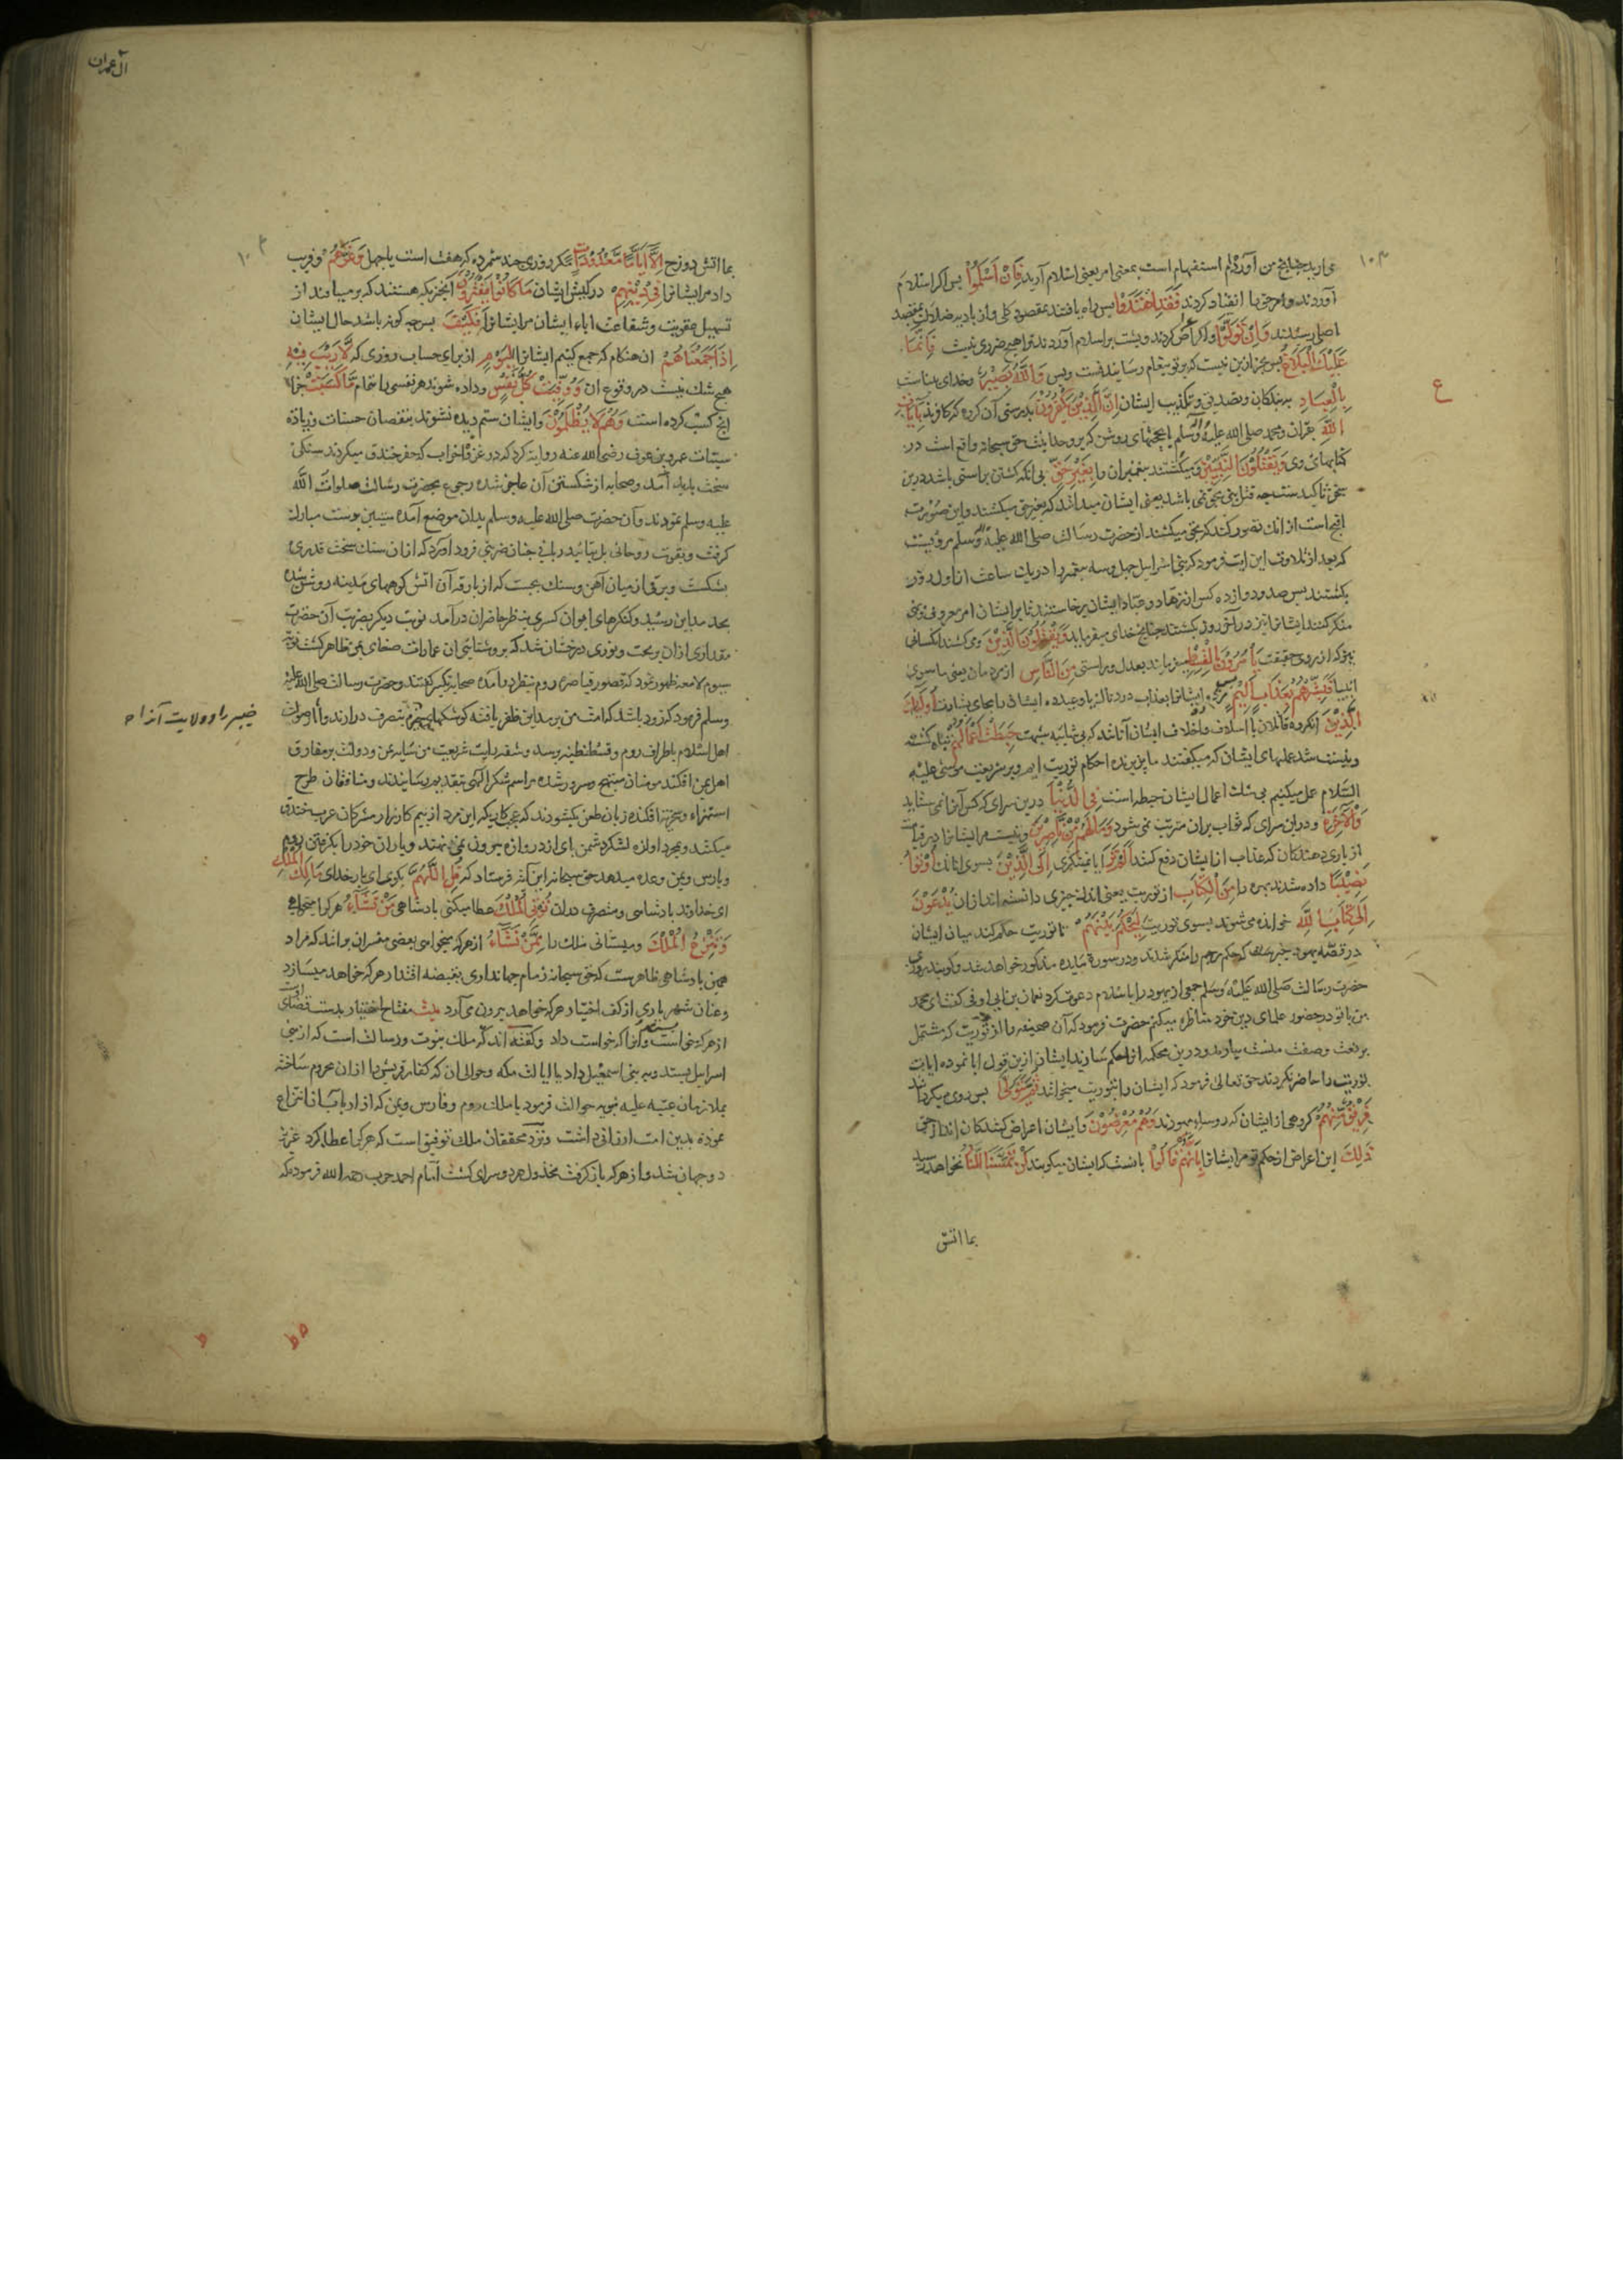 می آرید چنانچ من آورده ام استفهام است بمعنی امر یعنی اسلام آرید فَاِنْ اَسْلَمُوْا پس اگر اسلام
آوردند و امر حق را انقیاد کردند فَقَدِ اهْتَدَوْا پس راه یافتند بمقصود کلی و از بادیه ضلالت بمقصد
اصلی رسیدند وَاِنْ تَوَلَّوْا و اگر اعراض کردند و پشت بر اسلام آوردند ترا هیچ ضرری نیست فَاِنَّمَا
عَلَيْكَ الْبَلَاغُ پس جز این نیست که بر تو پیغام رسانیدنست و بس وَاللّٰهُ بَصِيْرٌ و خدای بیناست
بِالْعِبَادِ به بندکان و تصدیق و تکذیب ایشان اِنَّ الَّذِيْنَ يَكْفُرُوْنَ بدرستی آن کروه که کافرند بِاٰيَاتِ
اللّٰهِ بقران و محمد صلی الله علیه وآله وسلم یا بحجتهای روشن که بر وحدانیت حق سبحانه واقع است در
کتابهای وی وَيَقْتُلُوْنَ النَّبِيّٖنَ و میکشتند پیغمبران را بِغَيْرِ حَقٍّ بی آنکه کشتن براستی باشد درین
سخن تاکیدست چه قتل نبی بحق نمی باشد یعنی ایشان میدانند که بغیر حق میکشند و این صورت
اقبح است از آنک تصور کنند که بحق میکشند از حضرت رسالت صلی الله علیه وآله وسلم مرویست
که بعد از تلاوت این ایت فرمود که بنی اسرائیل چهل و سه پیغمبر را در یک ساعت از اول روز
بکشتند پس صد و دوازده کس از زهاد و عباد ایشان برخاستند تا بر ایشان امر معروف و نهی
منکر کنند ایشانرا نیز در آخر روز بکشتند چنانچ خدای میفرماید وَيَقْتُلُوْنَ الَّذِيْنَ و می کشند آنکسانی
نیز که از روی حقیقت يَاْمُرُوْنَ بِالْقِسْطِ میفرمایند بعدل و راستی مِنَ النَّاسِ از مردمان یعنی ماسوی
انبیا فَبَشِّرْهُمْ بِعَذَابٍ اَلِيْمٍ پس مژده ده ایشانرا بعذاب دردناک یا وعید ده ایشانرا بجای بشارت اُولٰٓئِكَ
الَّذِيْنَ آنکروه قاتلان با اسلاف و اخلاف ایشان آنانند که بی شایبه شبهت حَبِطَتْ اَعْمَالُهُمْ تباه کشته
و نیست شد عملهای ایشان که میکفتند ما پذیرنده احکام توریت ایم و بر شریعت موسی علیه
السلام عمل میکنیم بی شک اعمال ایشان حبطه است فِي الدُّنْيَا درین سرای که کس آنرا نمی ستاید
وَالْاٰخِرَةِ و در آن سرای که ثواب بران مترتب نمی شود وَمَا لَهُمْ مِّنْ نَّاصِرِيْنَ و نیست مر ایشانرا در قیامت
از یاری دهندکان که عذاب از ایشان دفع کنند اَلَمْ تَرَ آیا نمینکری اِلَى الَّذِيْنَ بسوی آنانک اُوْتُوْا
نَصِيْبًا داده شدند بهره را مِّنَ الْكِتَابِ از توریت یعنی اندک چیزی دانسته اند از ان يُدْعَوْنَ
اِلٰى كِتَابِ اللّٰهِ خوانده می شوند بسوی توریت لِيَحْكُمَ بَيْنَهُمْ تا توریت حکم کند میان ایشان
در قصه یهود خیبر که حکم رجم را منکر شدند و در سوره مایده مذکور خواهد شد و کویند روزی
حضرت رسالت صلی الله علیه وسلم جمعی از یهود را باسلام دعوت کرد نعمان بن ابی اوفی کفت ای محمد
من با تو در حضور علمای دین خود مناظره میکنم حضرت فرمود که آن صحیفه را از توریت که مشتمل
بر نعت و صفت منست بیارید و درین محکمه آنرا حکم سازند ایشان ازین قول ابا نموده ایات
توریت را حاضر نکردند حق تعالی فرمود که ایشان را بتوریت میخوانند ثُمَّ يَتَوَلّٰى پس روی میکردانند
فَرِيْقٌ مِّنْهُمْ کروهی از ایشان که روساء یهودند وَهُمْ مُعْرِضُوْنَ و ایشان اعراض کنندکان اند از حق
ذٰلِكَ این اعراض از حکم تو مر ایشانرا بِاَنَّهُمْ قَالُوْا بآنست که ایشان میکویند لَنْ تَمَسَّنَا النَّارُ نخواهد رسید
بما اتش
ع
۱۰۳
آل عمران
۱۰۴
بما اتش دوزخ اِلَّا اَيَّامًا مَّعْدُوْدَاتٍ مکر روزی چند شمرده که هفت است یا چهل وَغَرَّهُمْ و فریب
داد مر ایشانرا فِيْ دِيْنِهِمْ در کیش ایشان مَا كَانُوْا يَفْتَرُوْنَ آنچیزیکه هستند که بر میبافند از
تسهیل عقوبت و شفاعت اباء ایشان مر ایشانرا فَكَيْفَ پس چه کونه باشد حال ایشان
اِذَا جَمَعْنَاهُمْ ان هنکام که جمع کنیم ایشانرا لِيَوْمٍ از برای حساب روزی که لَّا رَيْبَ فِيْهِ
هیچ شک نیست در وقوع ان وَوُفِّيَتْ كُلُّ نَفْسٍ و داده شوند هر نفسی را تمام مَّا كَسَبَتْ جزای
انچ کسب کرده است وَهُمْ لَا يُظْلَمُوْنَ و ایشان ستم دیده نشوند بنقصان حسنات و زیاده
سیئات عمرو بن عوف رضی الله عنه روایت کرد که در غزوه احزاب که حفر خندق میکردند سنکی
سخت پدید آمد و صحابه از شکستن آن عاجز شده رجوع بحضرت رسالت صلوات الله
علیه وسلم نمودند و آن حضرت صلی الله علیه وسلم بدان موضع آمده میتین بدست مبارک
کرفت و بقوت روحانی بل بتائید ربانی چنان ضربتی فرود آورد که از ان سنک سخت قدری
بشکست و برقی از میان آهن و سنک بجست که از بارقه آن اتش کوههای مدینه روشن شده
بحد مداین رسید و کنکرهای ایوان کسری بنظر حاضران درآمد نوبت دیکر بضرب آن حضرت
مقداری از ان بریخت و نوری درخشان شد که بروشنایی ان عمارات صنعای یمن ظاهر کشت دفعه
سیوم لامعه ظهور نمود که قصور قیاصره روم بنظر درآمده صحابه تکبیر کفتند و حضرت رسالت صلی الله علیه
وسلم فرمود که زود باشد که امت من برین مداین ظفر یافته کوشکهای بتصرف درارند و آوازه صولت
اهل اسلام باطراف روم و قسطنطنیه برسد و شقه رایت شریعت من سایه عز و دولت بر مفارق
اهل یمن افکند مومنان مبتهج و مسرور شده مراسم شکر الهی بتقدیم رسانیدند و منافقان طرح
استهزاء و سخریت افکنده زبان طعن بکشودند که عجب کاریکه این مرد از بیم کارزار مشرکان عرب خندق
میکند و بمجرد اوازه لشکر دشمن پای از دروازه بیرون نمی نهند و یاران خود را بکرفتن روم
و پارس و یمن وعده میدهد حق سبحانه این آیت فرستاد که قُلِ اللّٰهُمَّ بکوی ای بار خدای مَالِكَ الْمُلْكِ
ای خداوند پادشاهی و متصرف دران تُؤْتِي الْمُلْكَ عطا میکنی پادشاهی مَنْ تَشَآءُ هر کرا میخواهی
وَتَنْزِعُ الْمُلْكَ و میستانی ملک را مِمَّنْ تَشَآءُ از هر که میخواهی بعضی مفسران برانند که مراد
همین پادشاهی ظاهر ست که حق سبحانه زمام جهانداری بقبضه اقتدار هر که خواهد میسازد
و عنان شهریاری از کف اختیار هر که خواهد بیرون می آرد بیت مفتاح اختیار بدست قضای
از هر که خواست بستد و آنرا که خواست داد و کفته اند که ملک نبوت و رسالت است که از بنی
اسرائیل بستد و به بنی اسمعیل داد یا ایالت مکه و حوالی ان که کفار قریش را از ان محروم ساخته
بملازمان عتبه علیه نبویه حوالت فرمود یا ملک روم و فارس و یمن که از ارباب آن انتزاع
نموده بدین امت ارزانی داشت و نزد محققان ملک توفیق است که هر کرا عطا کرد عزیز
دو جهان شد و از هر که باز کرفت مخذول هر دو سرای کشت امام احمد حرب رحمه الله فرموده که
خیبر را و ولایت آنرا